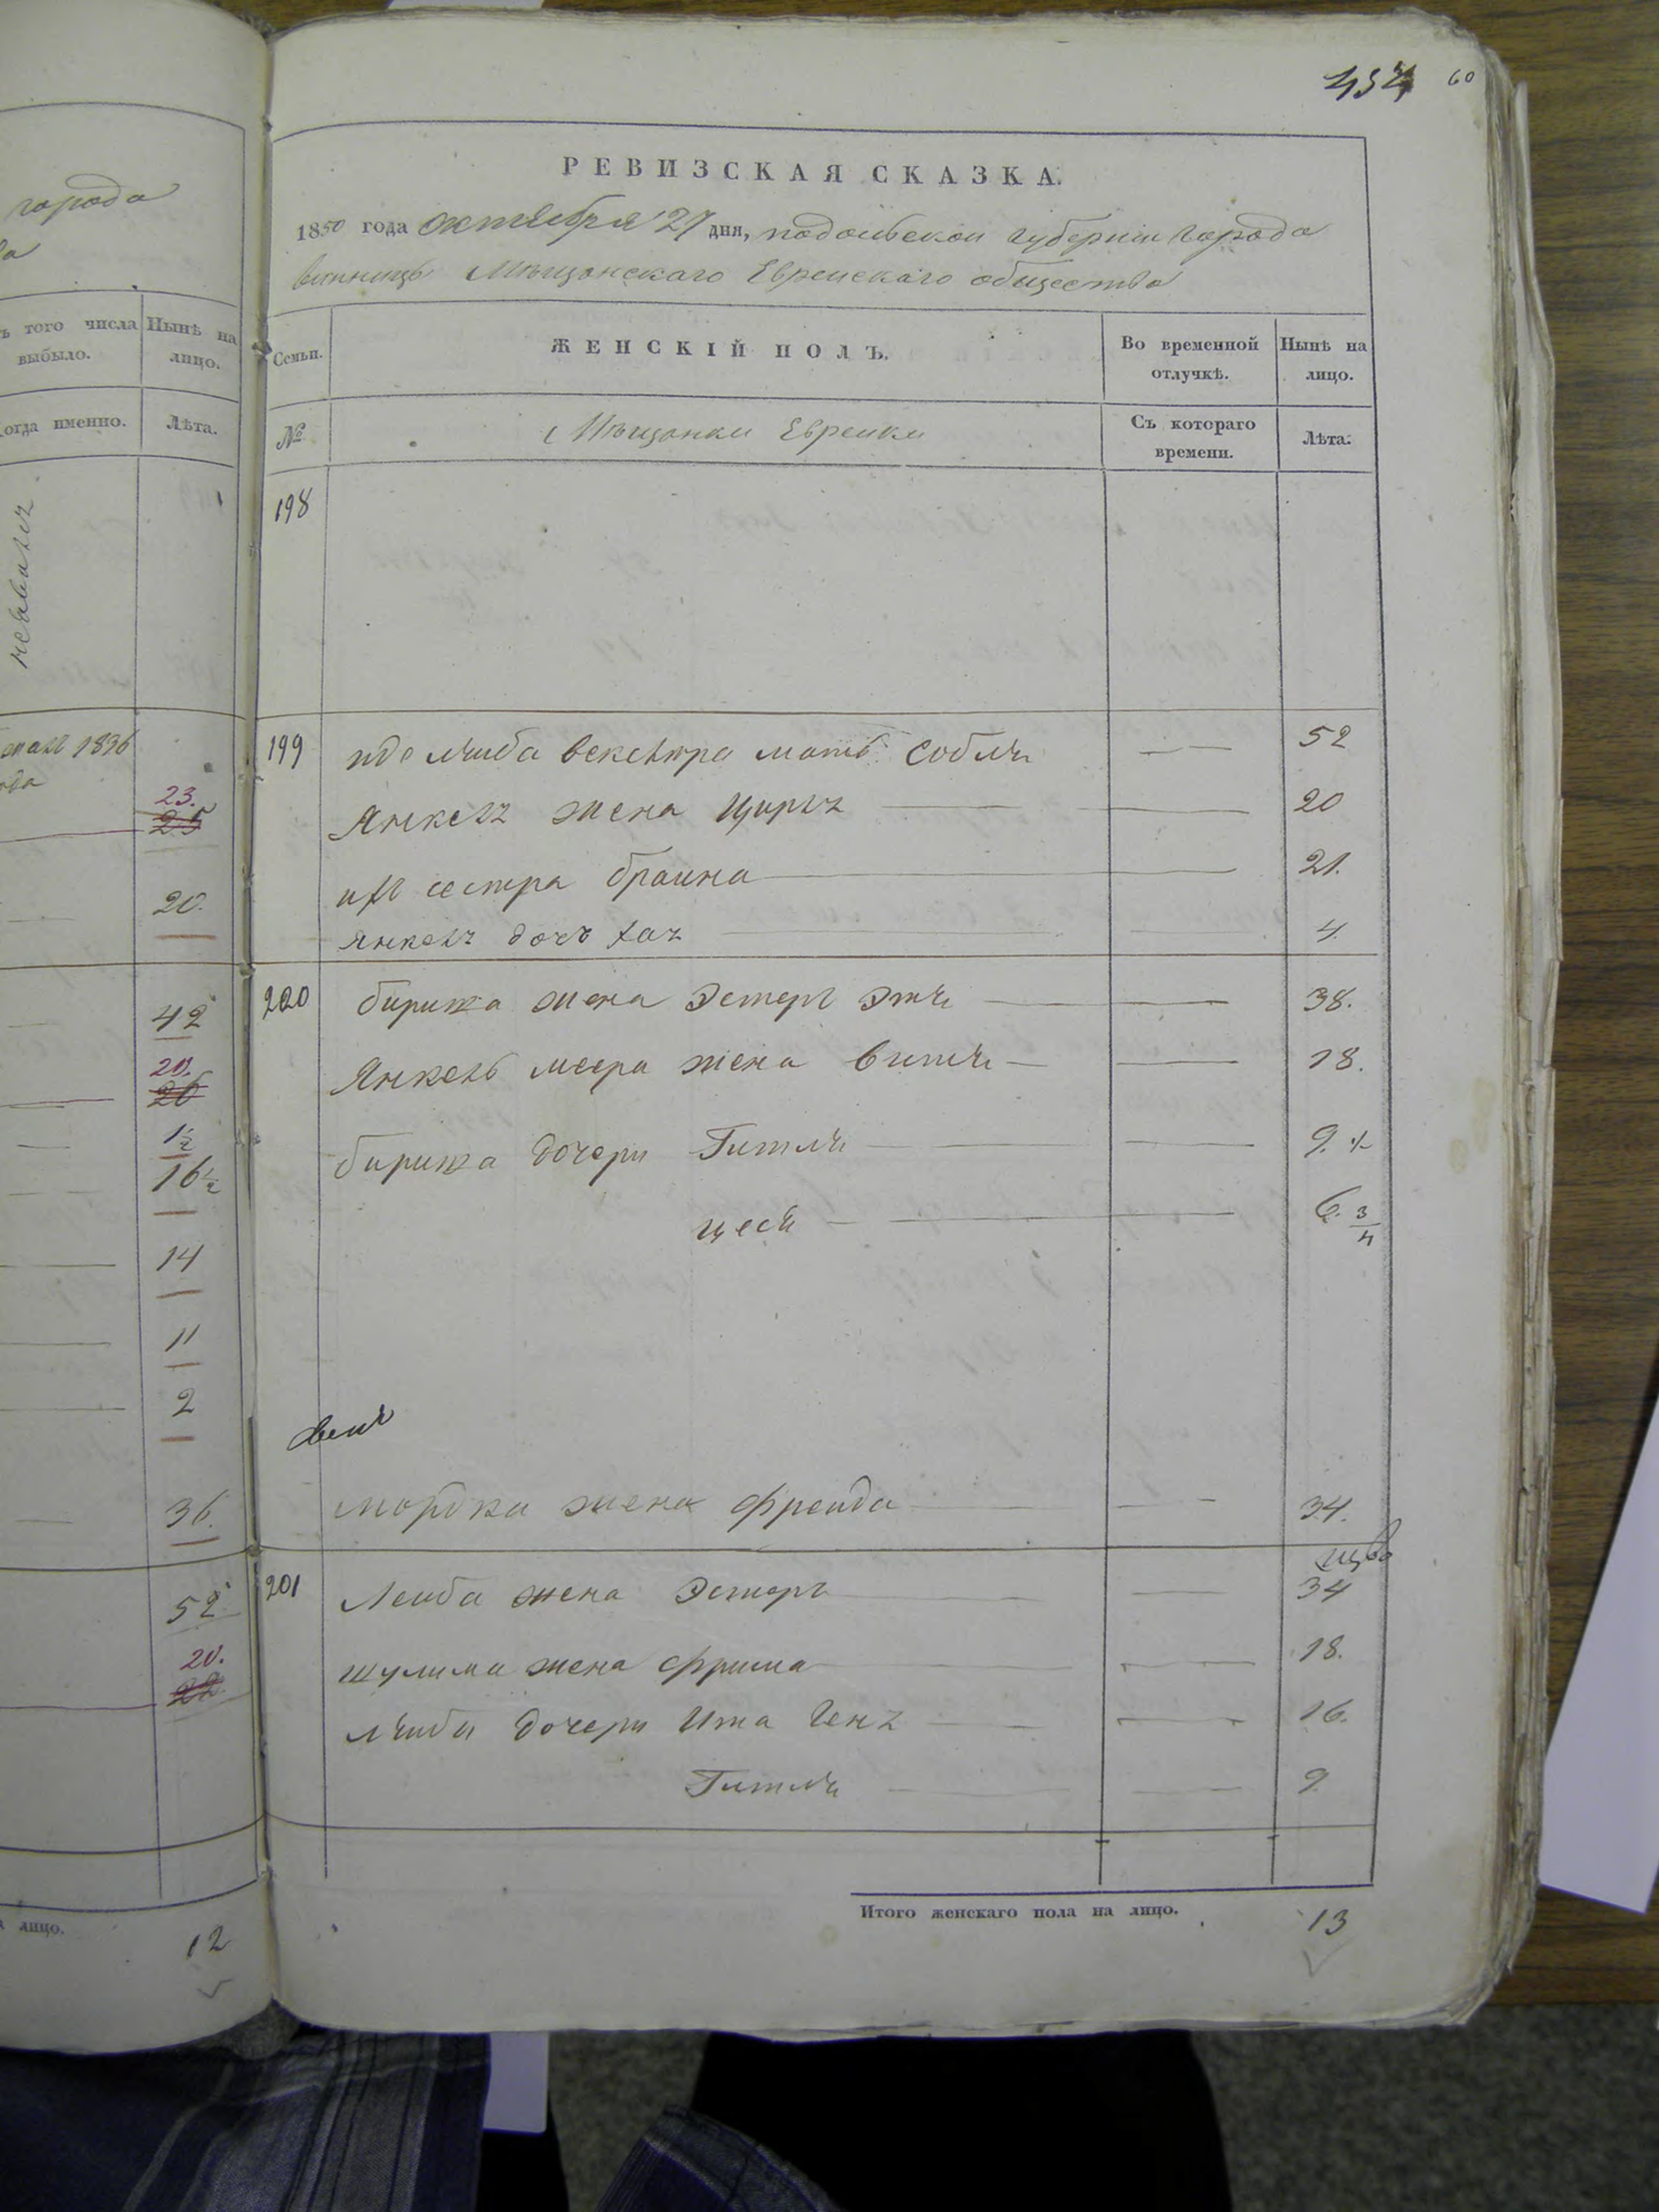 города
454 60
РЕВИЗСКАЯ СКАЗКА.
1850 года октября 27 дня, подольской губернии города
винницы Мѣщанскаго Еврейскаго общества
ъ того числа выбыло.
Нынѣ на лицо.
огда именно.
Лѣта.
Семьи.
ЖЕНСКІЙ ПОЛЪ.
Во временной отлучкѣ.
Нынѣ на лицо.
№
Мѣщанки Евреики
Съ котораго времени.
Лѣта.
198
1836
199 лѣиба векслера мать собля 52
23.
25
Янкеля жена Цирля 20
ихъ сестра браина 21.
20.
янкеля дочь хая 4.
200 бириша жена Эстеръ Этя 38.
42
Янкель меера жена витя 18.
20.
26
1 1/2
бириша дочери Гитля 9. 1/2
16 1/2
цеся 6. 3/4
14
11
2
мордка жена фреида 34.
36.
201 Леиба жена Эстеръ 34
52
шулима жена фрима 18.
20.
22
лѣиба дочери Ита Геня 16.
Гитля 9
Итого женскаго пола на лицо. 13
лицо. 12